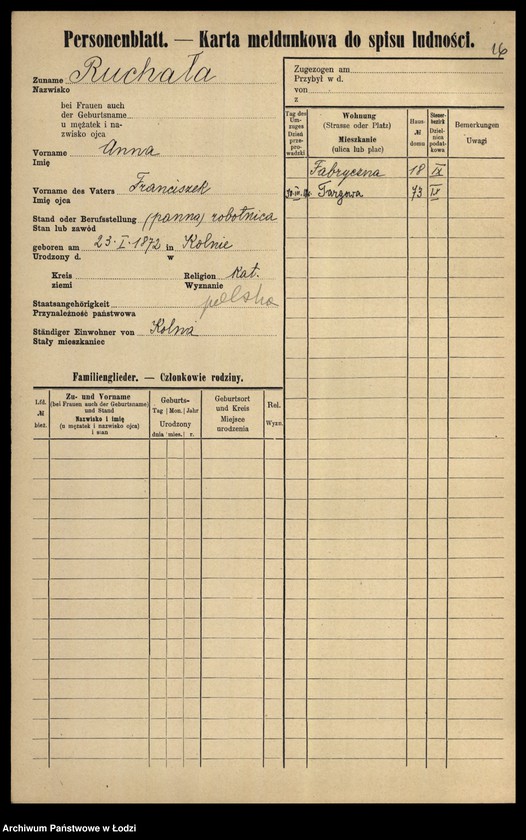 16
Personenblatt. — Karta meldunkowa do spisu ludności.
Zuname Ruchała
Nazwisko
bei Frauen auch
der Geburtsname
u mężatek i na-
zwisko ojca
Vorname Anna
Imię
Vorname des Vaters Franciszek
Imię ojca
Stand oder Berufsstellung (panna) robotnica
Stan lub zawód
geboren am 23. I. 1872 in Kolnie
Urodzony d. w
Kreis Religion kat.
ziemi Wyznanie
Staatsangehörigkeit polska
Przynależność państwowa
Ständiger Einwohner von Kolna
Stały mieszkaniec
Familienglieder. — Członkowie rodziny.
Lfd. № bież.
Zu- und Vorname
(bei Frauen auch der Geburtsname)
und Stand
Nazwisko i imię
(u mężatek i nazwisko ojca)
i stan
Geburts-
Tag Mon. Jahr
Urodzony
dnia mies. r.
Geburtsort
und Kreis
Miejsce
urodzenia
Rel.
Wyzn.
Zugezogen am
Przybył w d.
von
z
Tag des
Um-
zuges
Dzień
prze-
prowadzki
Wohnung
(Strasse oder Platz)
Mieszkanie
(ulica lub plac)
Haus-
№
domu
Steuer-
bezirk
Dziel-
nica
podat-
kowa
Bemerkungen
Uwagi
Fabryczna 18 IX
Targowa 73 IX
Archiwum Państwowe w Łodzi